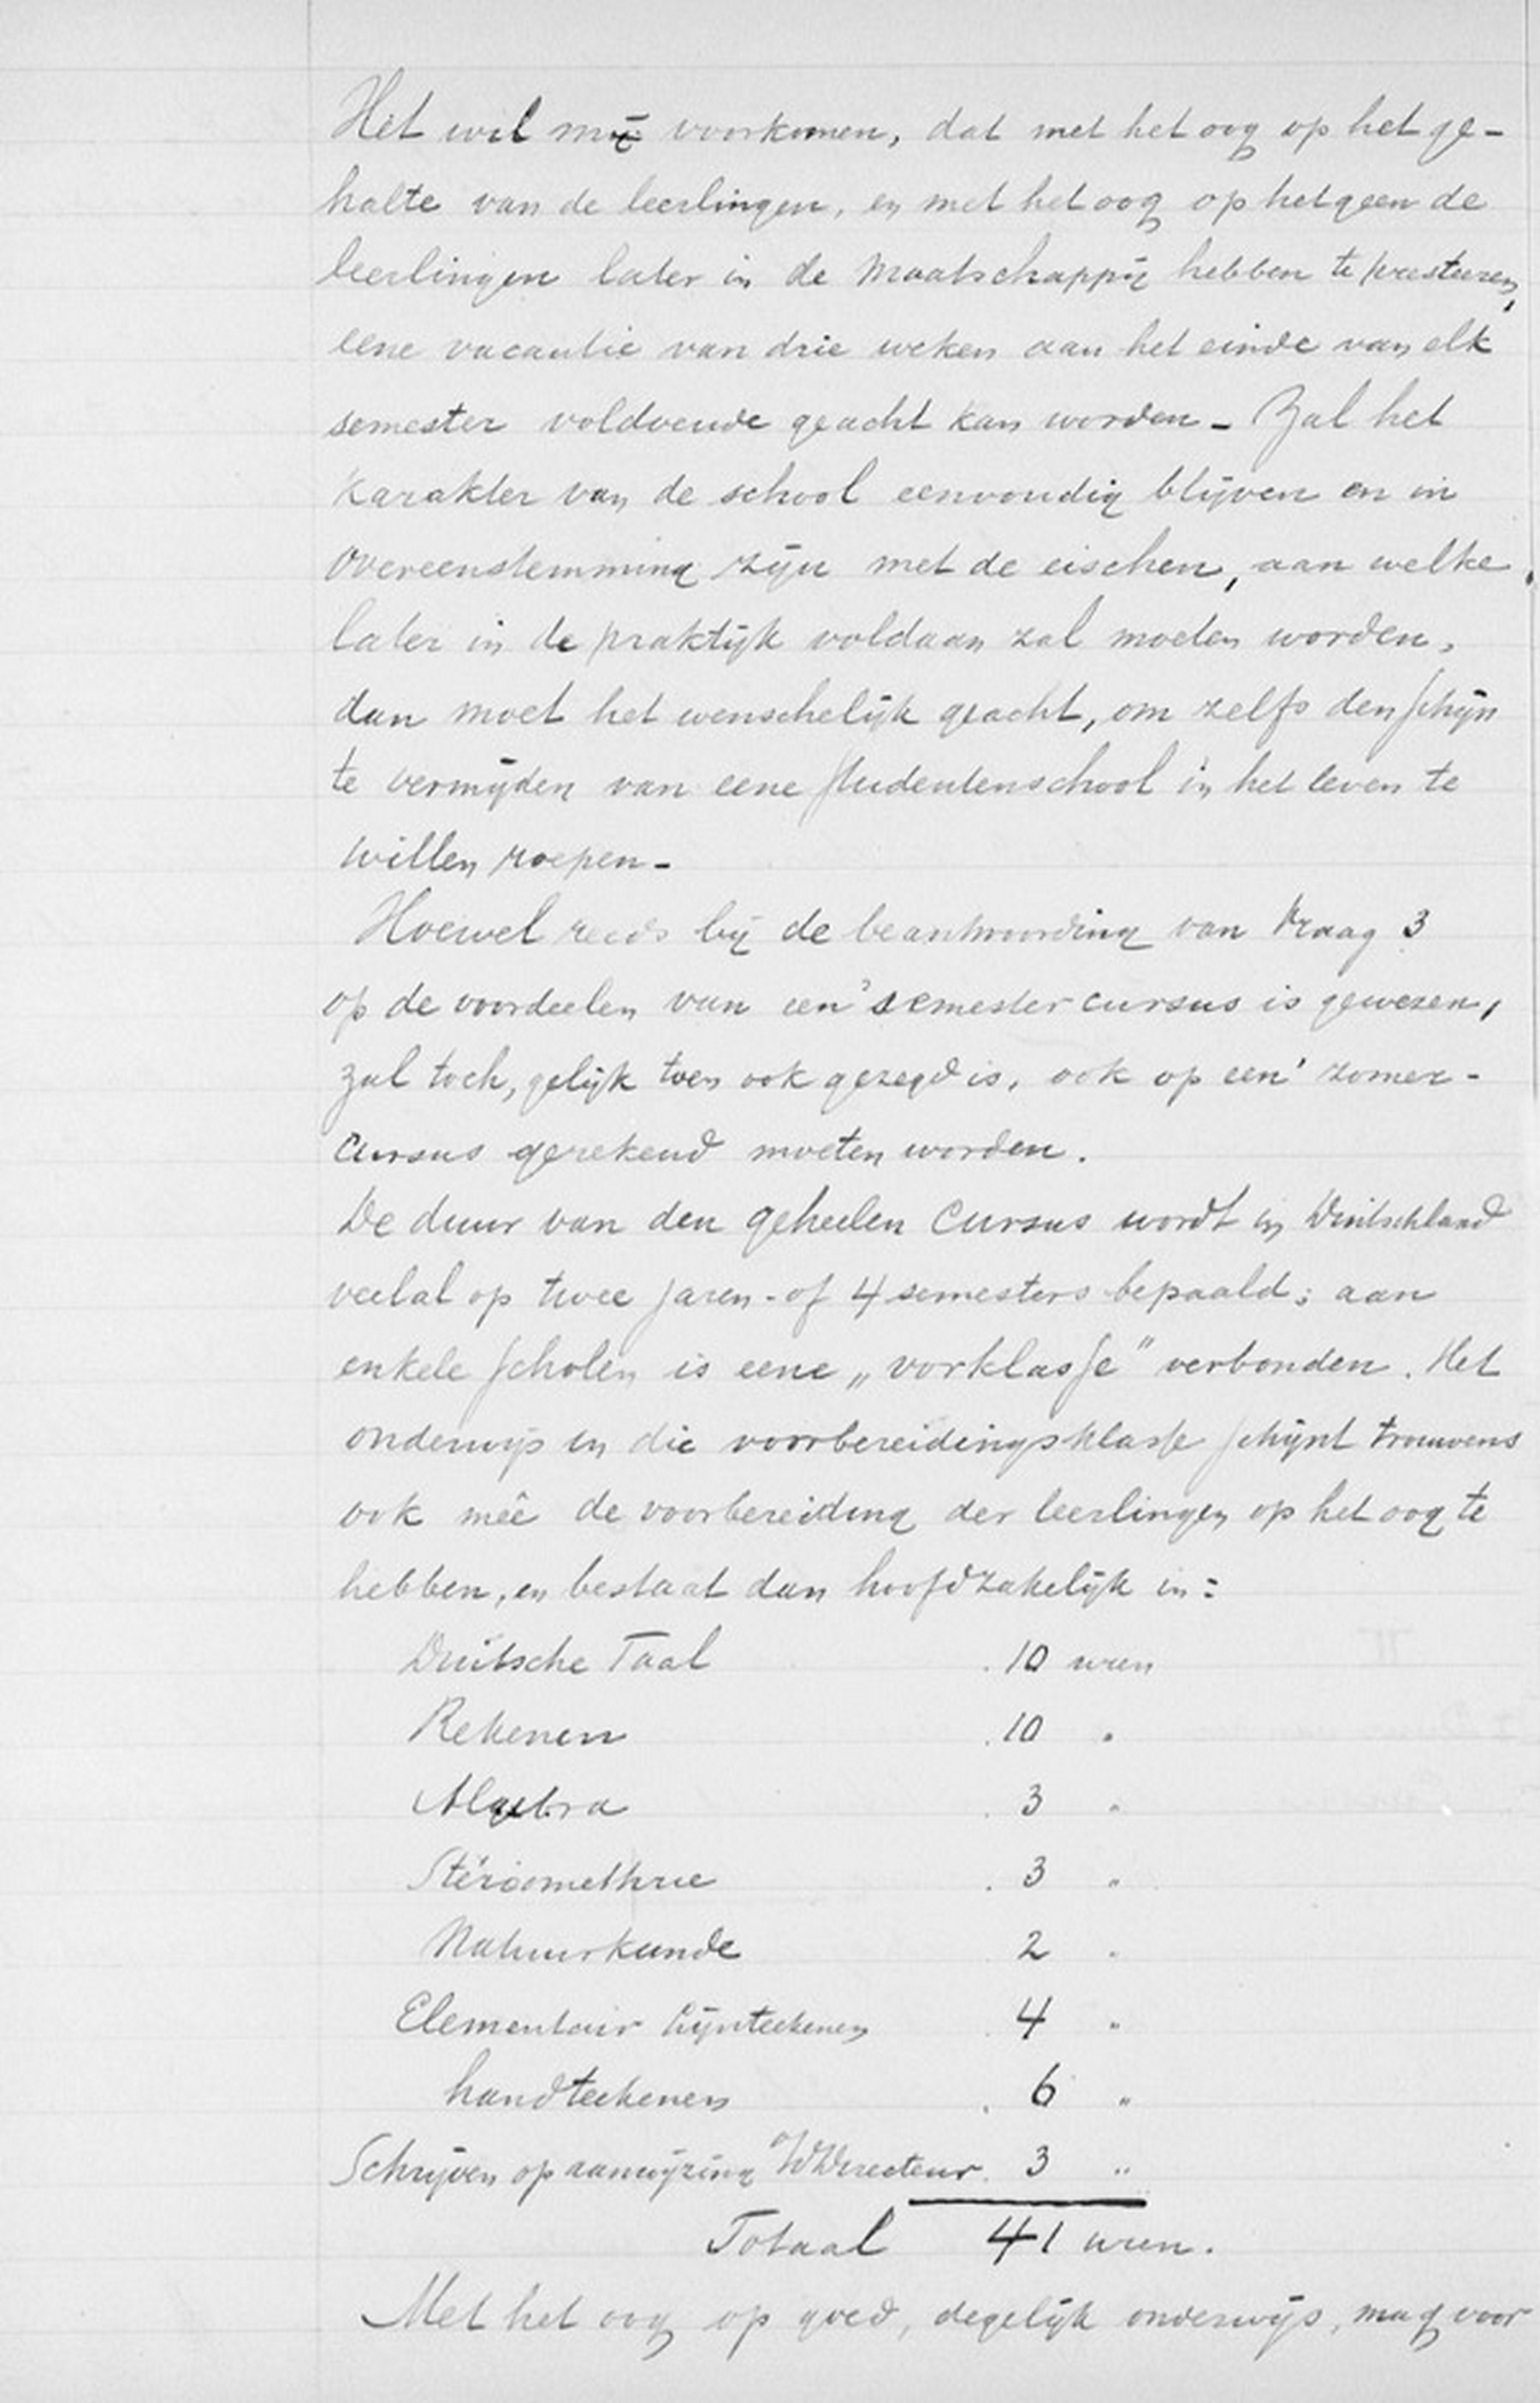 Het wil mij voorkomen, dat met het oog op het ge-
halte van de leerlingen, en met het oog op hetgeen de
leerlingen later in de Maatschappij hebben te presteeren,
eene vacantie van drie weken aan het einde van elk
semester voldoende geacht kan worden - Zal het
karakter van de school eenvoudig blijven en in
overeenstemming zijn met de eischen, aan welke
later in de praktijk voldaan zal moeten worden,
dan moet het wenschelijk geacht, om zelfs den schijn
te vermijden van eene studentenschool in het leven te
willen roepen -
Hoewel reeds bij de beantwoording van Vraag 3
op de voordeelen van een' semester cursus is gewezen,
zal toch, gelijk toen ook gezegd is, ook op een' zomer-
cursus gerekend moeten worden.
De duur van den geheelen Cursus wordt in Duitschland
veelal op twee jaren - of 4 semesters bepaald; aan
enkele scholen is eene „vorklasse" verbonden. Het
onderwijs in die voorbereidingsklasse schijnt trouwens
ook mêe de voorbereiding der leerlingen op het oog te
hebben, en bestaat dan hoofdzakelijk in:
Duitsche Taal . 10 uren
Rekenen . 10 "
Algebra . 3 "
Stériomethrie . 3 "
Natuurkunde 2 "
Elementair Lijnteekenen . 4 "
handteekenen . 6 "
Schrijven op aanwijzing v/d Directeur. 3 "
Totaal 41 uren.
Met het oog op goed, degelijk onderwijs, mag voor